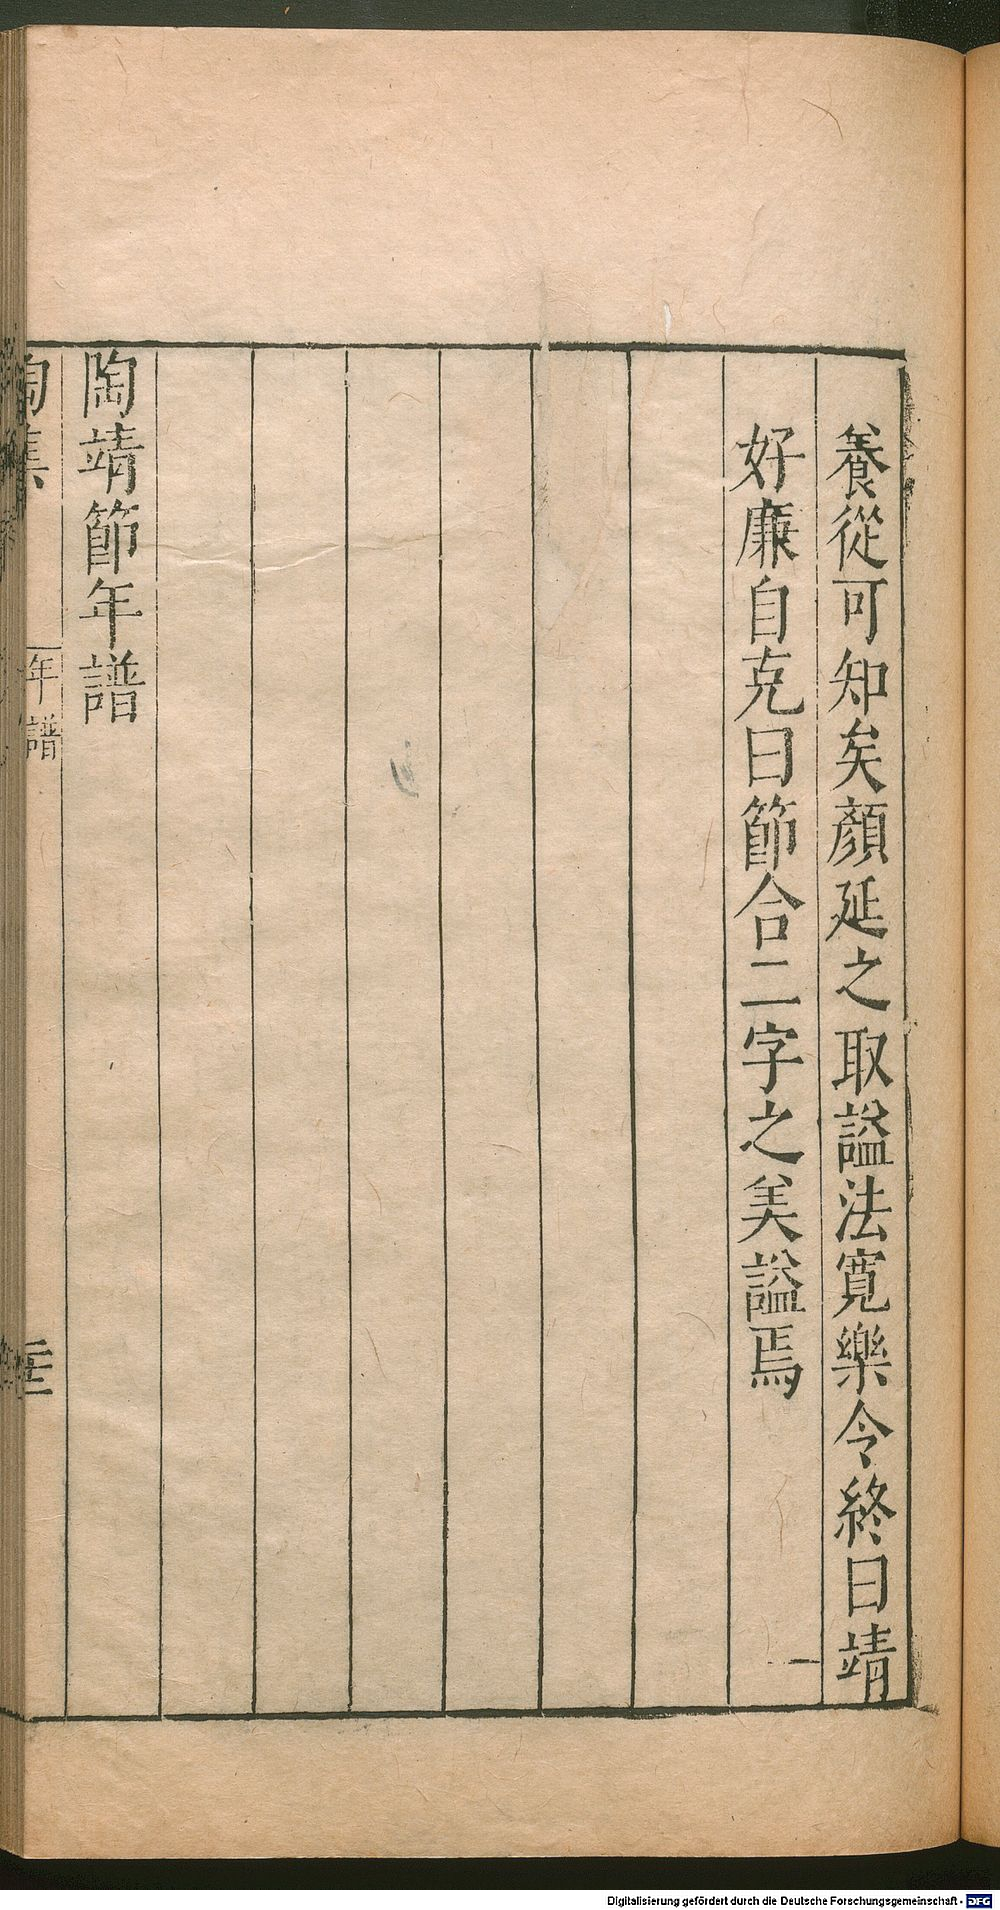 養從可知矣顏延之取謚法寬樂令終曰靖
好廉自克曰節合二字之美謚焉
陶靖節年譜
陶集
年譜
Digitalisierung gefördert durch die Deutsche Forschungsgemeinschaft - DFG